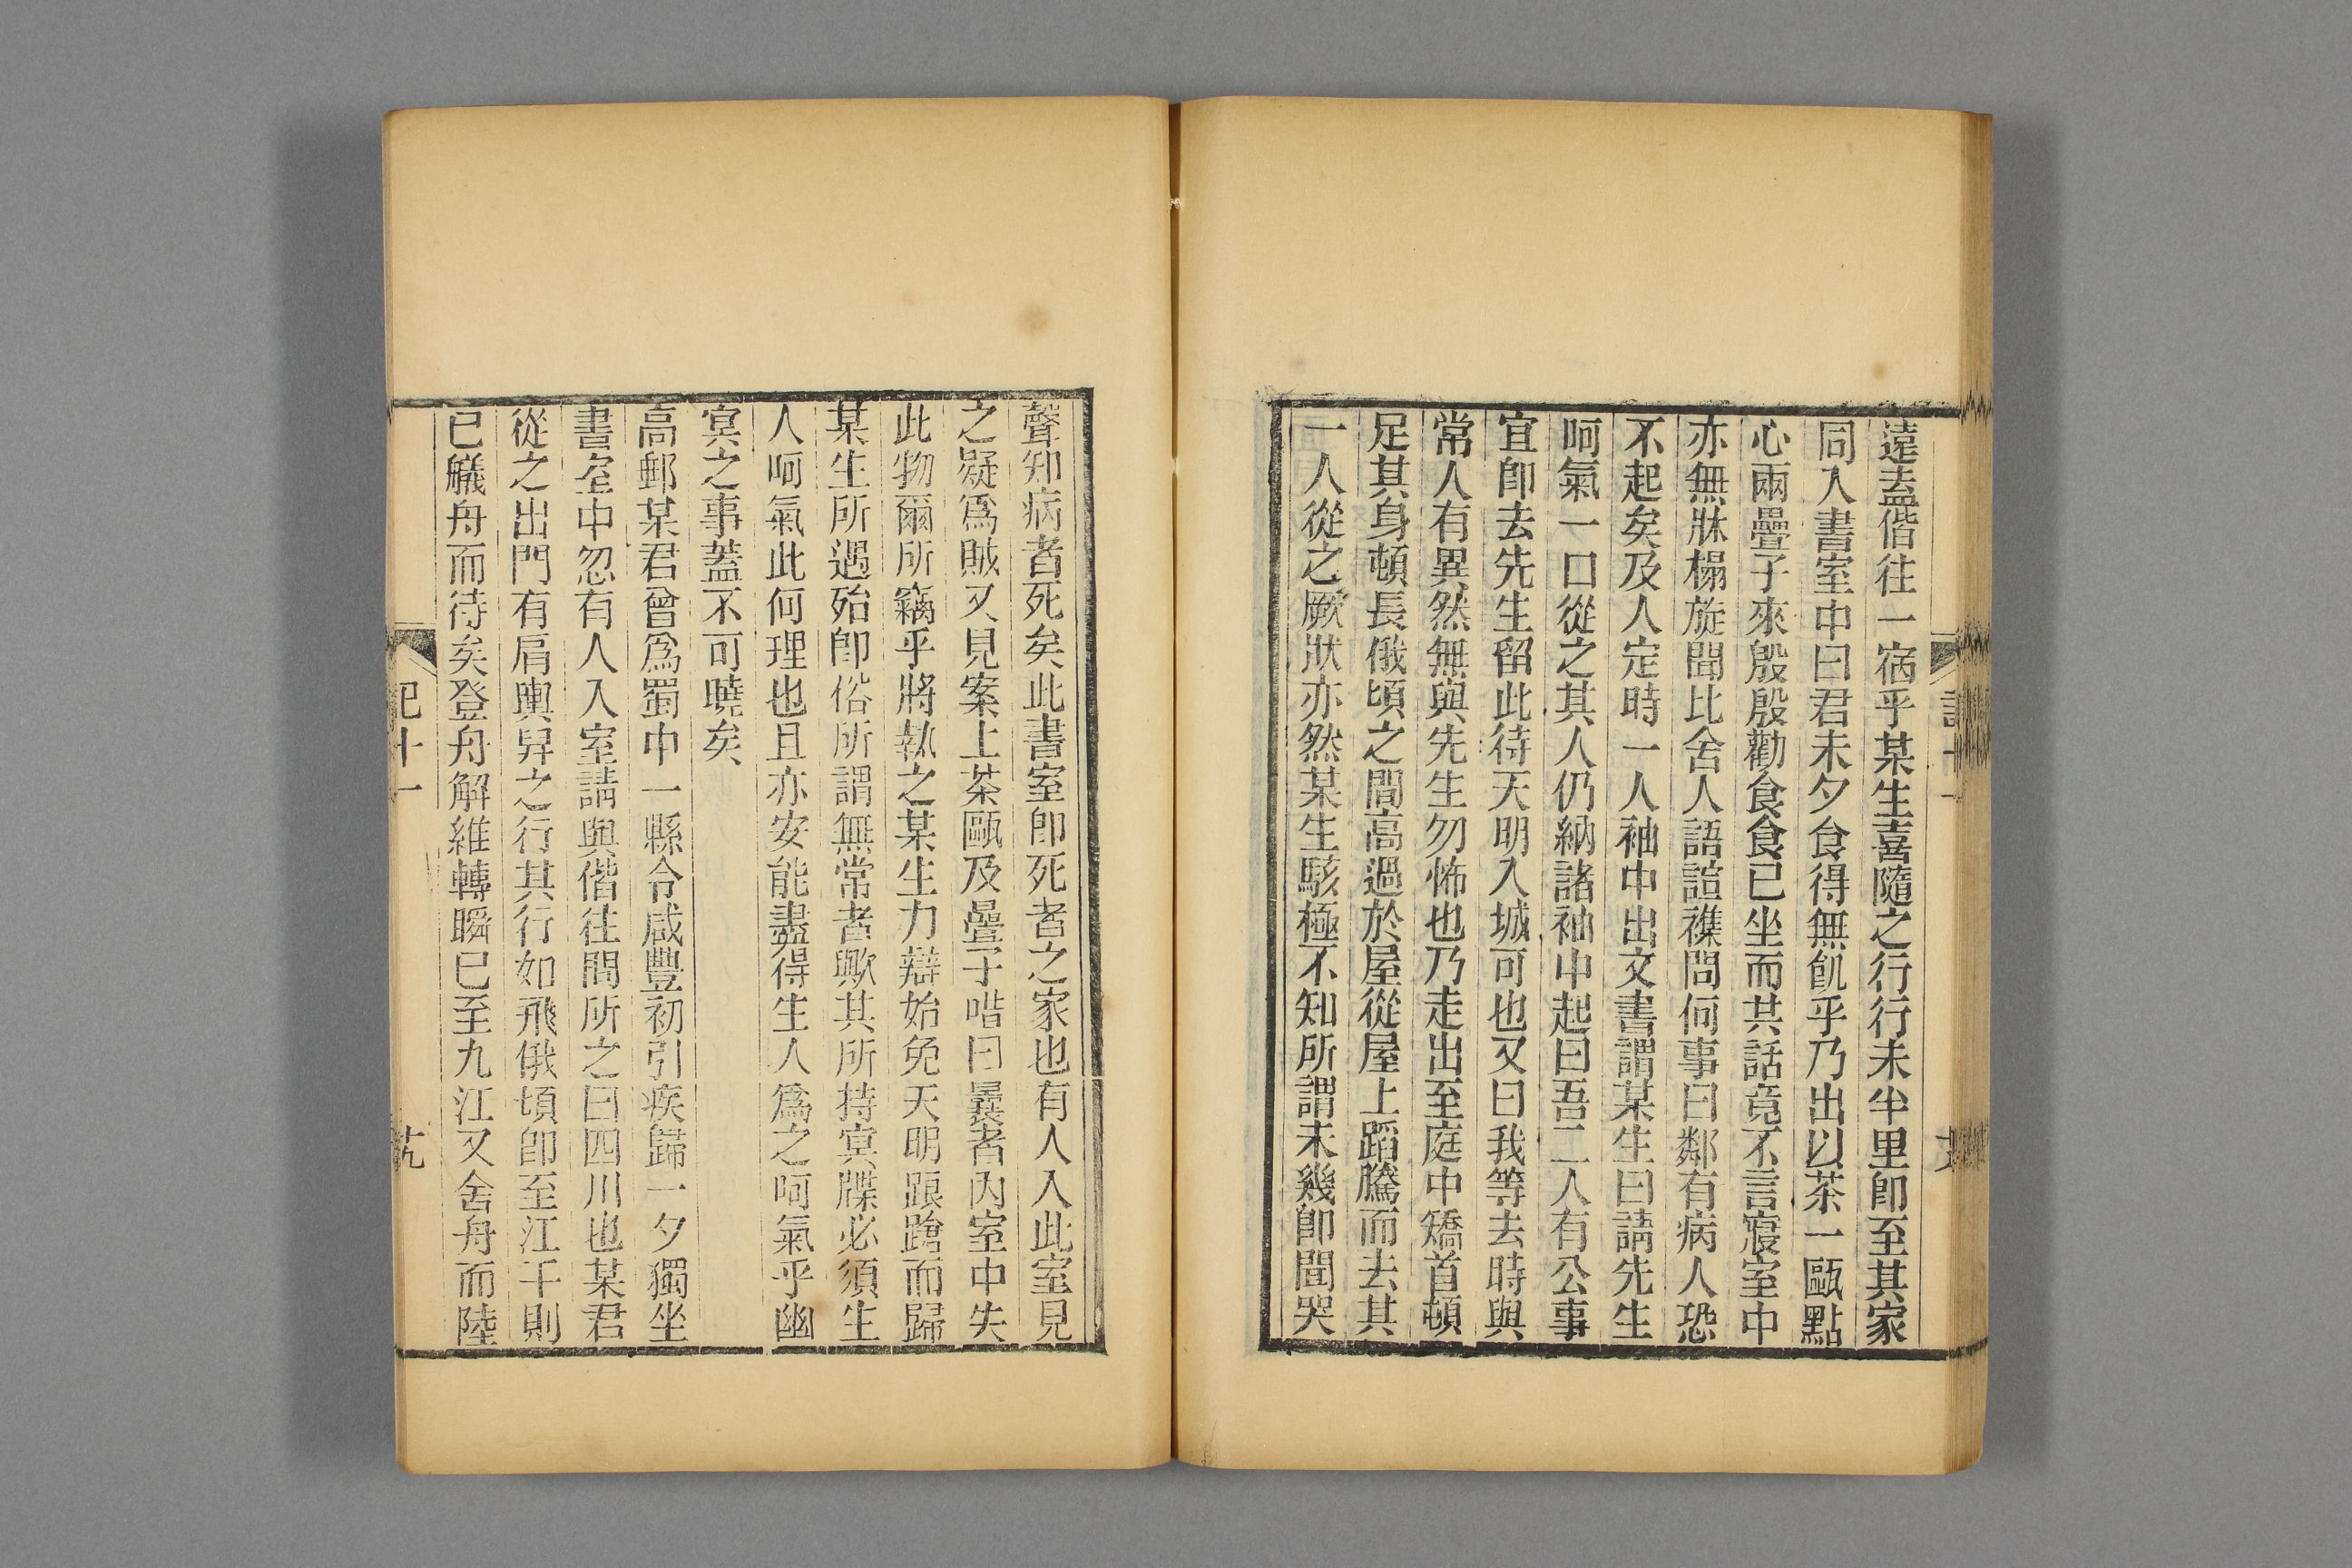 遠去盍偕往一宿乎某生喜隨之行行未半里卽至其家
同入書室中曰君未夕食得無飢乎乃出以茶一甌點
心兩疊子來殷殷勸食食已坐而共話竟不言寢室中
亦無牀榻旋聞比舍人語諠襍問何事曰鄰有病人恐
不起矣及人定時一人袖中出文書謂某生曰請先生
呵氣一口從之其人仍納諸袖中起曰吾二人有公事
宜卽去先生留此待天明入城可也又曰我等去時與
常人有異然無與先生勿怖也乃走出至庭中矯首頓
足其身頓長俄頃之間高過於屋從屋上蹈騰而去其
一人從之厥狀亦然某生駭極不知所謂未幾卽聞哭
聲知病者死矣此書室卽死者之家也有人入此室見
之疑爲賊又見案上茶甌及疊子喈曰曩者內室中失
此物爾所竊乎將執之某生力辯始免天明踉蹌而歸
某生所遇殆卽俗所謂無常者歟其所持冥牒必須生
人呵氣此何理也且亦安能盡得生人爲之呵氣乎幽
冥之事蓋不可曉矣
高郵某君曾爲蜀中一縣令咸豐初引疾歸一夕獨坐
書室中忽有人入室請與偕往問所之曰四川也某君
從之出門有肩輿舁之行其行如飛俄頃卽至江干則
已艤舟而待矣登舟解維轉瞬已至九江又舍舟而陸
記十一